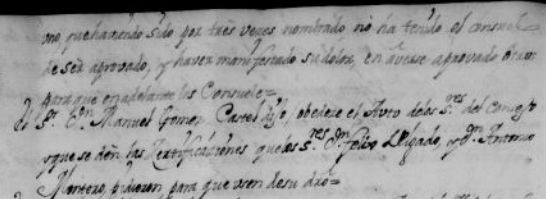 mo que haviendo sido por tres veces nombrado no ha tenido el consuelo
de ser aprovado, y haver manifestado su dolor, en averse aprovado
para que en adelante los Consuele=
El Sr. Dn. Manuel Gomez Castel dijo, obedece el Auto de los Sres. del Consejo
y que se den las Zertificaciones que los Sres. Dn. Felix Delgado, y Dn. Antonio
Montero, pidieron para que usen de su dro=